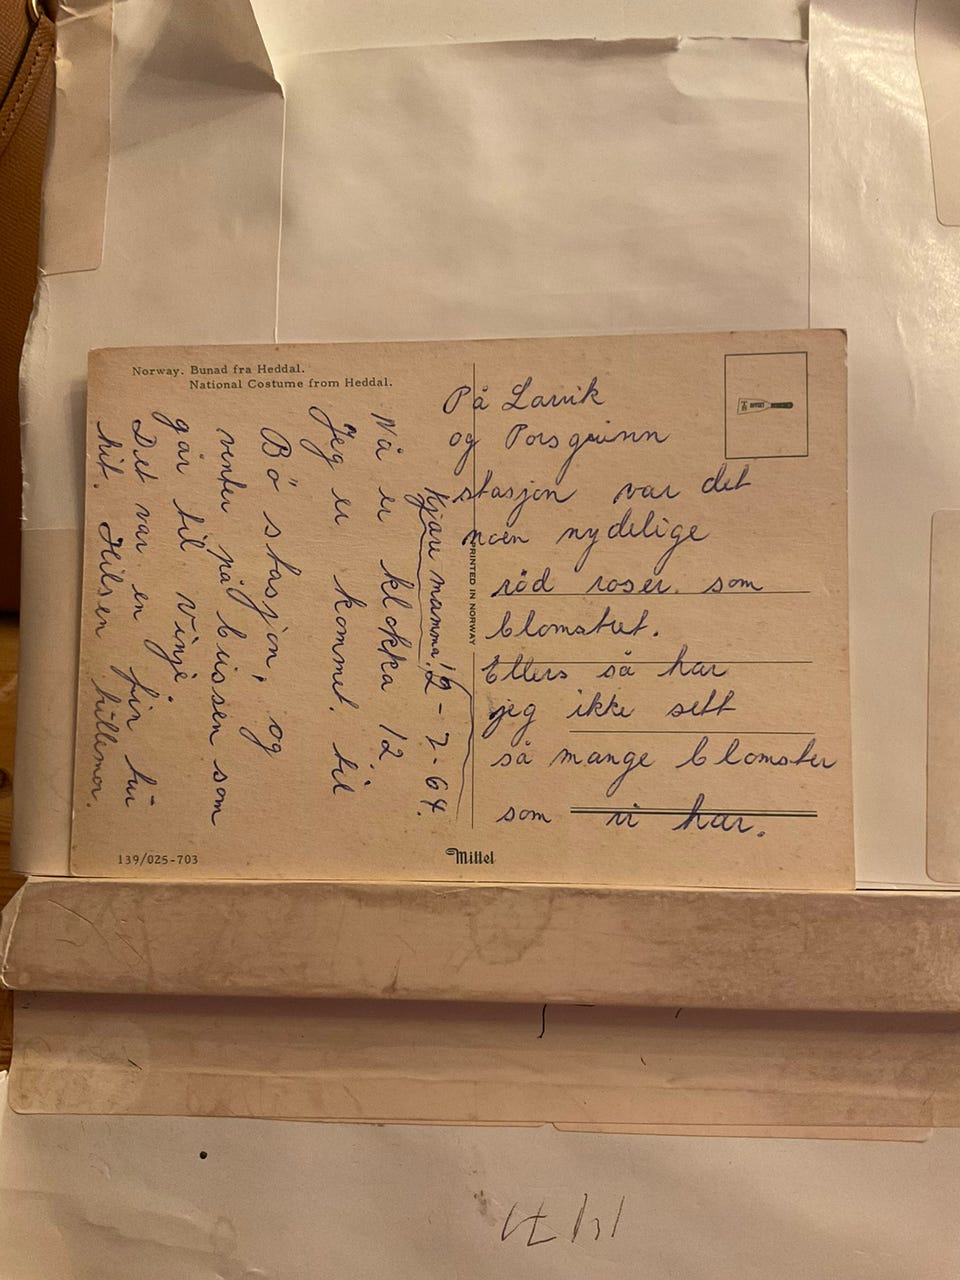 Norway. Bunad fra Heddal.
National Costume from Heddal.
Kjære mamma! 2-7-64.
Nå er klokka 12
Jeg er kommet til
Bö stasjon, og
venter på bussen som
går til Vinje.
Det var en fin tur
hit. Hilsen lillemor.
På Larvik
og Porsgrunn
stasjon var det
noen nydelige
röd roser som
blomstret.
Ellers så har
jeg ikke sett
så mange blomster
som vi har.
PRINTED IN NORWAY
139/025-703
Mittel